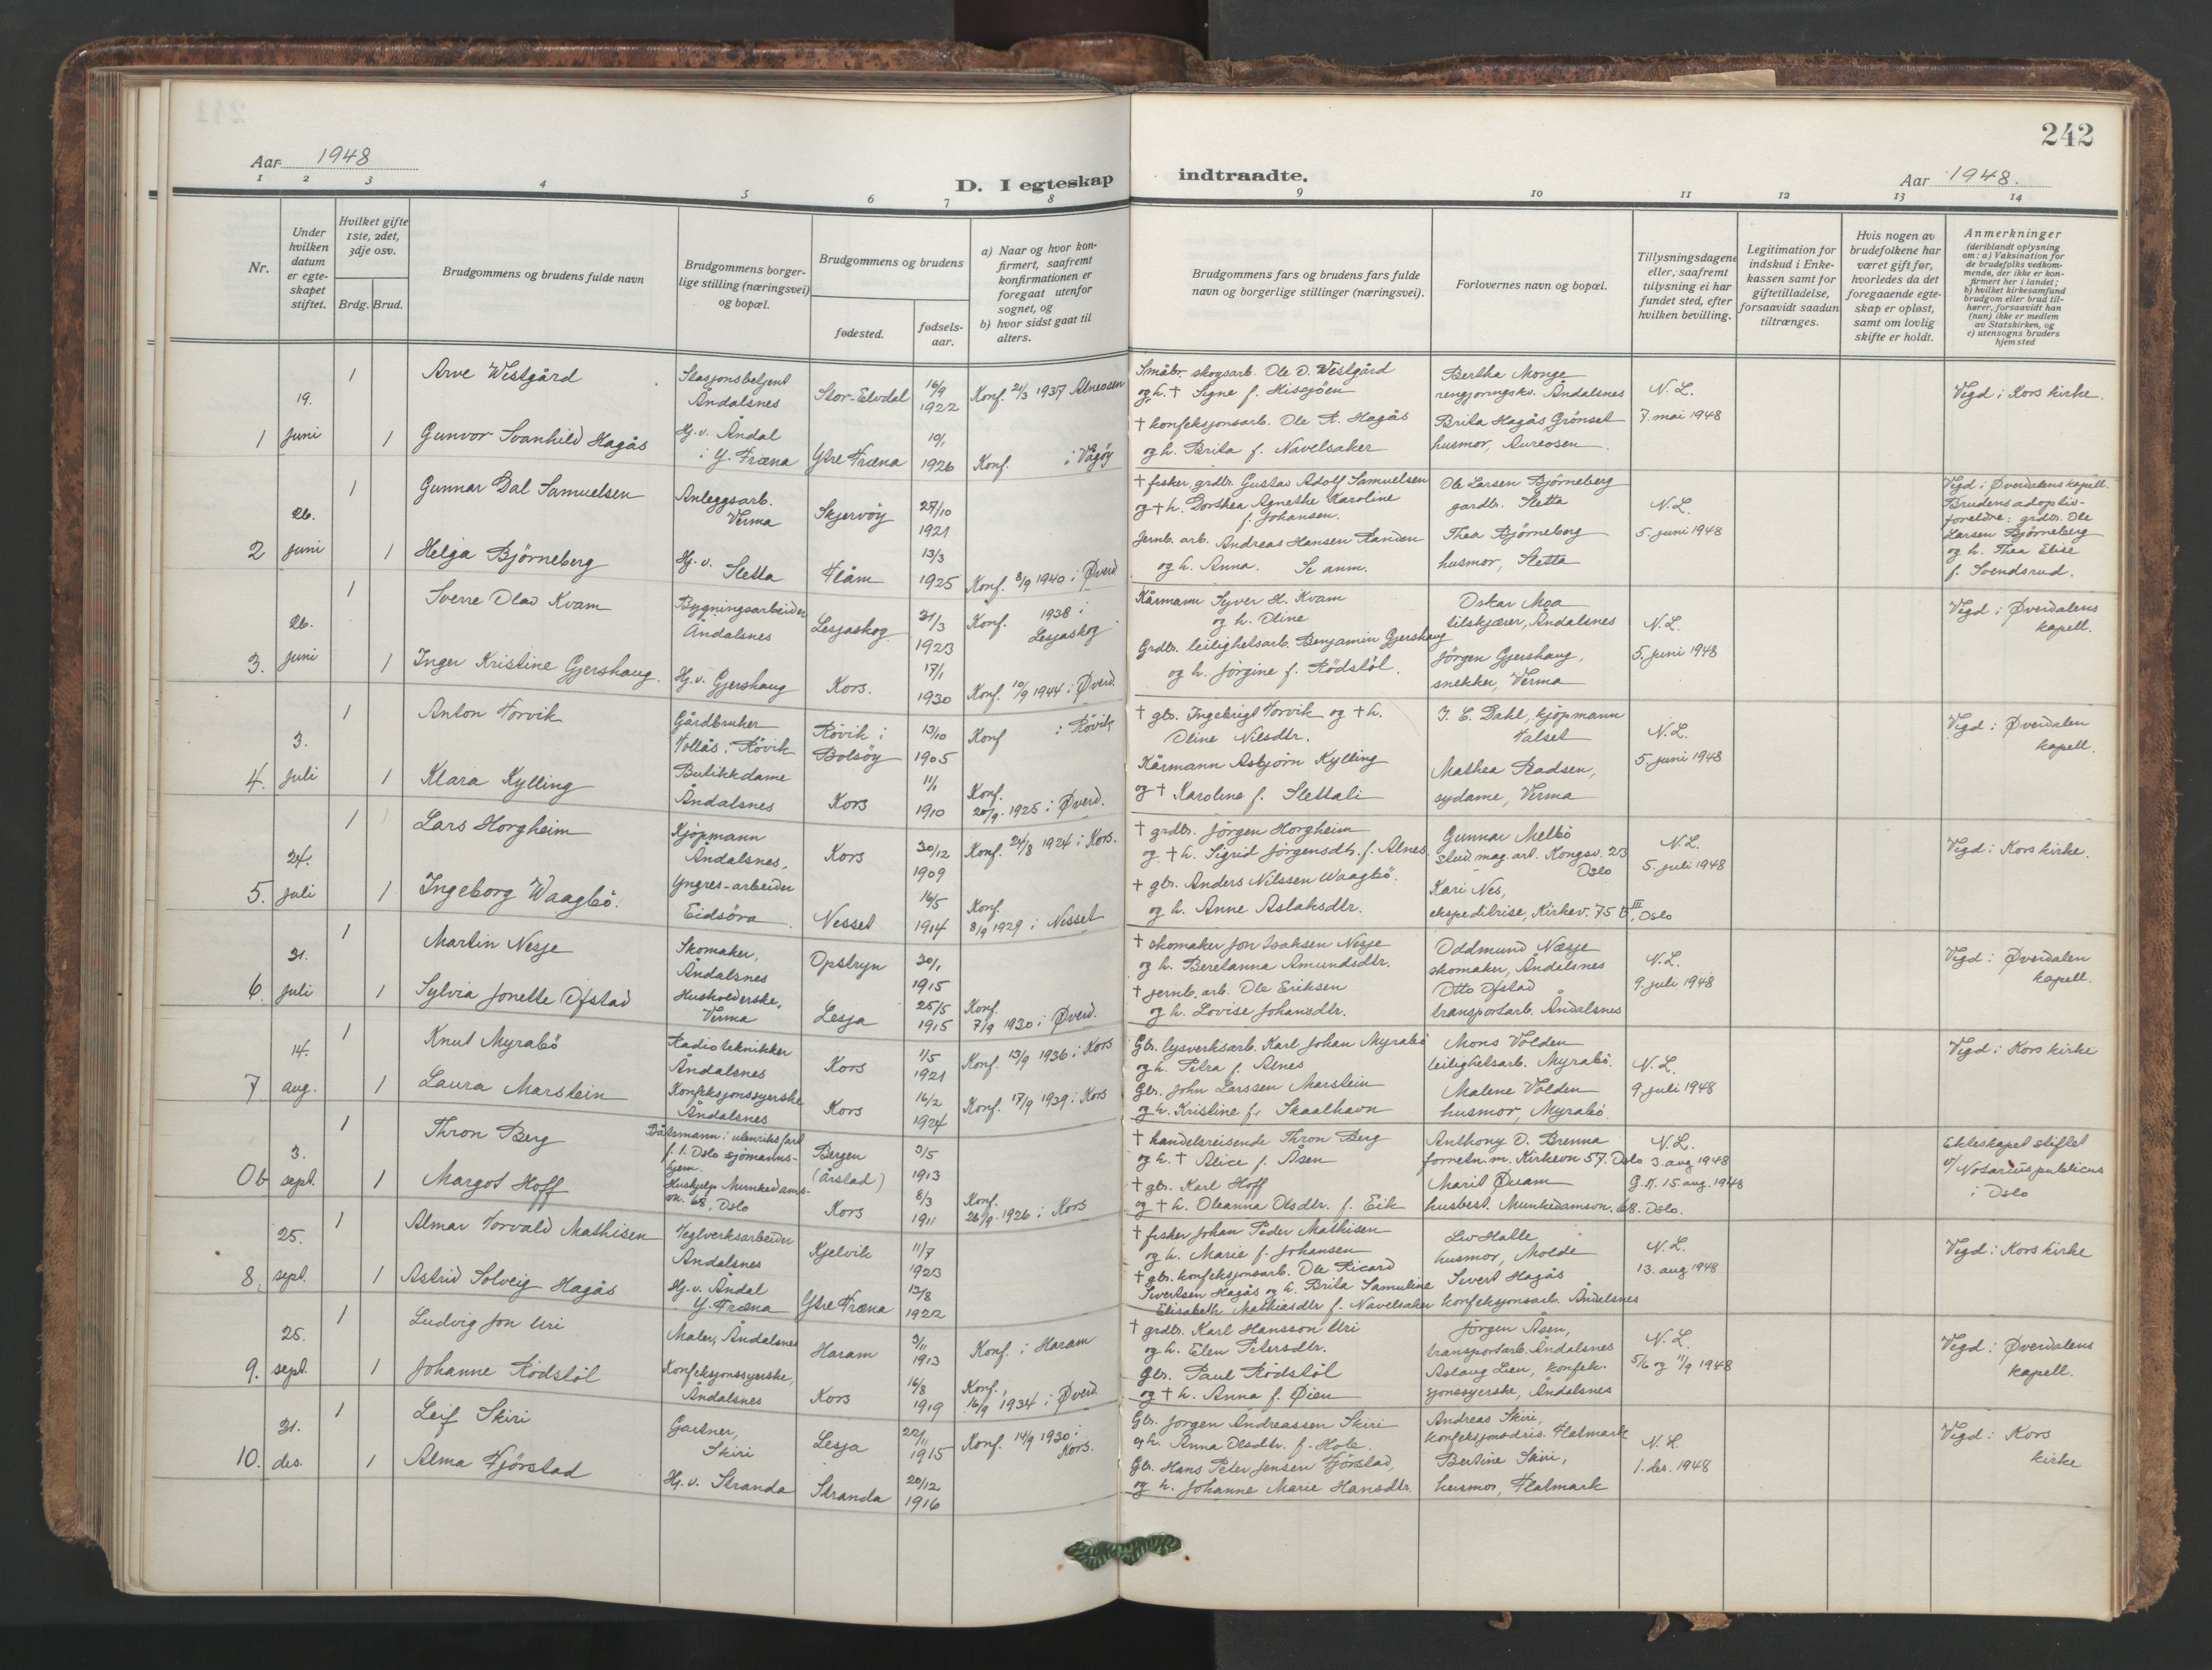 242
Aar 1948
D. I egteskap indtraadte.
Aar 1948.
1 2 3 4 5 6 7 8 9 10 11 12 13 14
Nr.
Under hvilken datum er egteskapet stiftet.
Hvilket gifte 1ste, 2det, 3dje osv.
Brdg. Brud.
Brudgommens og brudens fulde navn
Brudgommens borgerlige stilling (næringsvei) og bopæl.
Brudgommens og brudens
fødested.
fødsels-aar.
a) Naar og hvor konfirmert, saafremt konfirmationen er foregaat utenfor sognet, og
b) hvor sidst gaat til alters.
Brudgommens fars og brudens fars fulde navn og borgerlige stillinger (næringsvei).
Forlovernes navn og bopæl.
Tillysningsdagene eller, saafremt tillysning ei har fundet sted, efter hvilken bevilling.
Legitimation for indskud i Enkekassen samt for giftetilladelse, forsaavidt saadan tiltrænges.
Hvis nogen av brudefolkene har været gift før, hvorledes da det foregaaende egteskap er opløst, samt om lovlig skifte er holdt.
Anmerkninger
(deriblandt oplysning om: a) Vaksination for de brudefolks vedkommende, der ikke er konfirmert her i landet; b) hvilket kirkesamfund brudgom eller brud tilhører, forsaavidt han (hun) ikke er medlem av Statskirken, og c) utensogns bruders hjemsted
1 19. juni
1 Arve Westgård
Stasjonsbetjent Åndalsnes
Stor-Elvdal
16/9 1922
Konf. 21/3 1937 Atneosen
Småbr. skogsarb. Ole O. Westgård
og h. † Signe f. Hissjöen
Bertha Monge
rengjøringsks. Åndalsnes
N. L.
7. mai 1948
Vigd i Kors kirke.
1 Gunvor Svanhild Hagås
Hj. v. Andal i Y. Fræna
Ytre Fræna
10/1 1926
Konf. i Vågöy
† konfeksjonsarb. Ole R. Hagås
og h. Brita f. Navelsaker
Brita Hagås Grönset
husmor, Aureosen
2 26. juni
1 Gunnar Dal Samuelsen
Anleggsarb. Verma
Skjervöy
27/10 1921
† fisker, grdbr. Gustav Adolf Samuelsen
og † h. Dorthea Agnethe Karoline
f. Johansen.
Ole Larsen Bjørneberg
gardbr. Sletta
N. L.
5. juni 1948
Vigd i Øverdalens kapell.
Brudens adoptiv-
foreldre: grdbr. Ole
Larsen Bjørneberg
og h. Thea Elise
f. Svendsrud.
1 Helga Björneberg
Hj. v. Sletta
Flåm
13/3 1925
Konf. 8/9 1940 i Øverd
Jernb. arb. Andreas Hansen
og h. Anna. Se anm.
Thea Bjørneberg
husmor, Sletta
3. 26. juni
1 Sverre Olav Kvam
Bygningsarbeider Åndalsnes
Lesjaskog
21/3 1923
Konf. 1938 i Lesjaskog
Kårmann Syver H. Kvam
og h. Oline
Oskar Moa
tilskjærer, Åndalsnes
N. L.
5. juni 1948
Vigd i Øverdalens
kapell.
1 Inger Kristine Gjershaug.
Hj. v. Gjershaug
Kors.
17/1 1930
Konf. 10/9 1944 i Øverd.
Grdbr. leilighetsarb. Benjamin Gjershaug
og h. Jörgine f. Rödstöl.
Jörgen Gjershaug,
snekker, Verma
4. 3. juli
1 Anton Torvik
Gårdbruker Tollås i Rövik
Rövik i Bolsöy
13/10 1905
Konf i Rövik
† gbr. Ingebrigt Torvik og † h.
Oline Nilsdtr.
J. C. Dahl, kjøpmann
Valset
N. L.
5. juni 1948
Vigd i Øverdalen
kapell.
1 Klara Kylling
Butikkdame Åndalsnes
Kors
11/1 1910
Konf. 20/9 1925 i Øverd.
Kårmann Asbjørn Kylling
og † Karoline f. Slettali
Mathea Radsen,
sydame, Verma
5. 24. juli
1 Lars Horgheim
Kjöpmann Åndalsnes,
Kors
30/12 1909
Konf. 24/8 1924 i Kors.
† grdbr. Jörgen Horgheim
og † h. Sigrid Jørgensdtr. f. Alnes
Gunnar Melbö
stud. mag. art. Kongsv. 23
Oslo
N. L.
5. juli 1948
Vigd i Kors kirke.
1 Ingeborg Waagbö.
Yngres-arbeider Eidsöra
Nesset
16/5 1914
Konf. 8/9 1929 i Nesset
† gbr. Anders Nilssen Waagbö.
og h. Anne Aslaksdtr.
Kari Nes,
ekspeditrise, Kirkev. 75 B III, Oslo
6. 31. juli
1 Martin Nesje
Skomaker, Åndalsnes
Opstryn
30/1 1915
† skomaker Jon Isaksen Nesje
og h. Beretanna Amundsdtr.
Oddmund Nesje
skomaker, Åndalsnes
N. L.
9. juli 1948
Vigd i Øverdalen
kapell.
1 Sylvia Jonette Ofstad
Husholderske, Verma
Lesja
25/5 1915
Konf. 7/9 1930 i Øverd.
† jernb. arb. Ole Eriksen
og h. Lovise Johansdtr.
Otto Ofstad
transportarb. Åndalsnes
7 14. aug.
1 Knut Myrabö
Radiotekniker Åndalsnes
Kors
1/5 1921
Konf. 13/9 1936 i Kors
Gbr. lysverksarb. Karl Johan Myrabö
og h. Petra f. Alnes
Mons Volden
leilighetsarb. Myrabö.
N. L.
9. juli 1948
Vigd i Kors kirke
1 Laura Marstein
Konfeksjonssyerske Åndalsnes
Kors
16/2 1924
Konf. 17/9 1939 i Kors
Gbr. John Larssen Marstein
og h. Kristine f. Skaalhavn
Malene Volden
husmor, Myrabö
Ob 3. sept.
1 Thron Berg
Båtsmann i utenriks fart
f. t. Oslo sjömannshjem.
Bergen (Årstad)
3/5 1913
† handelsreisende Thron Berg
og h. † Alice f. Åsen
Anthony O. Brenna
forretn. m. Kirkevn 57. Oslo
N. L.
3. aug 1948
G. K. 15 aug. 1948
Ekteskapet stiftet
v/ Notarius publicus
i Oslo
1 Margot Hoff
Hushjelp Munkedams-
vn. 68, Oslo
Kors
8/3 1911
Konf. 26/9 1926 i Kors
† gbr. Karl Hoff
og † h. Oleanna Olsdtr. f. Eik
Marit Øvam
husbest. Munkedamsvn. 68. Oslo.
8. 25. sept.
1 Almar Torvald Mathisen
Teglverksarbeider Åndalsnes
Kjelvik
11/7 1923
† fisker Johan Peder Mathisen
og h. Marie f. Johansen
Liv Halle
husmor, Molde
N. L.
13. aug 1948
Vigd i Kors kirke
1 Astrid Solveig Hagås
Hj. v. Åndal Y. Fræna
Ytre Fræna
13/8 1922
† gbr. konfeksjonsarb. Ole Ricard
Sivertsen Hagås og h. Brita Samuline
Elisabeth Mathiasdtr f. Navelsaker
Sivert Hagås
konfeksjonsarb. Åndalsnes
9. 25. sept.
1 Ludvig Jon Uri
Maler, Åndalsnes
Haram
3/11 1913
Konf. i Haram
† grdbr. Karl Hansson Uri
og h. Elen Petersdtr.
Jörgen Åsen,
transportarb. Åndalsnes
N. L.
5/6 og 11/9 1948
Vigd i Øverdalens
kapell.
1 Johanne Rödstöl
Konfeksjonssyerske, Åndalsnes
Kors
16/8 1919
Konf., 16/9 1934 i Øverd.
Gbr. Paul Rödstöl
og † h. Anna f. Øien
Aslaug Lien, konfek-
sjonssyerske, Åndalsnes
10. 31. des.
1 Leif Skiri
Gartner, Skiri
Lesja
22/11 1915
Konf. 14/9 1930 i Kors.
Gbr. Jörgen Andreassen Skiri
og h. Anna Olsdtr. f. Hole.
Andreas Skiri,
konfeksjonsdriv. Flatmark
N. L.
1. des. 1948
Vigd i Kors
kirke
1 Alma Fjörstad
Hj. v. Stranda
Stranda
20/12 1916
Gbr. Hans Peter Jensen Fjörstad,
og h. Johanne Marie Hansdtr.
Bertine Skiri,
husmor, Flatmark